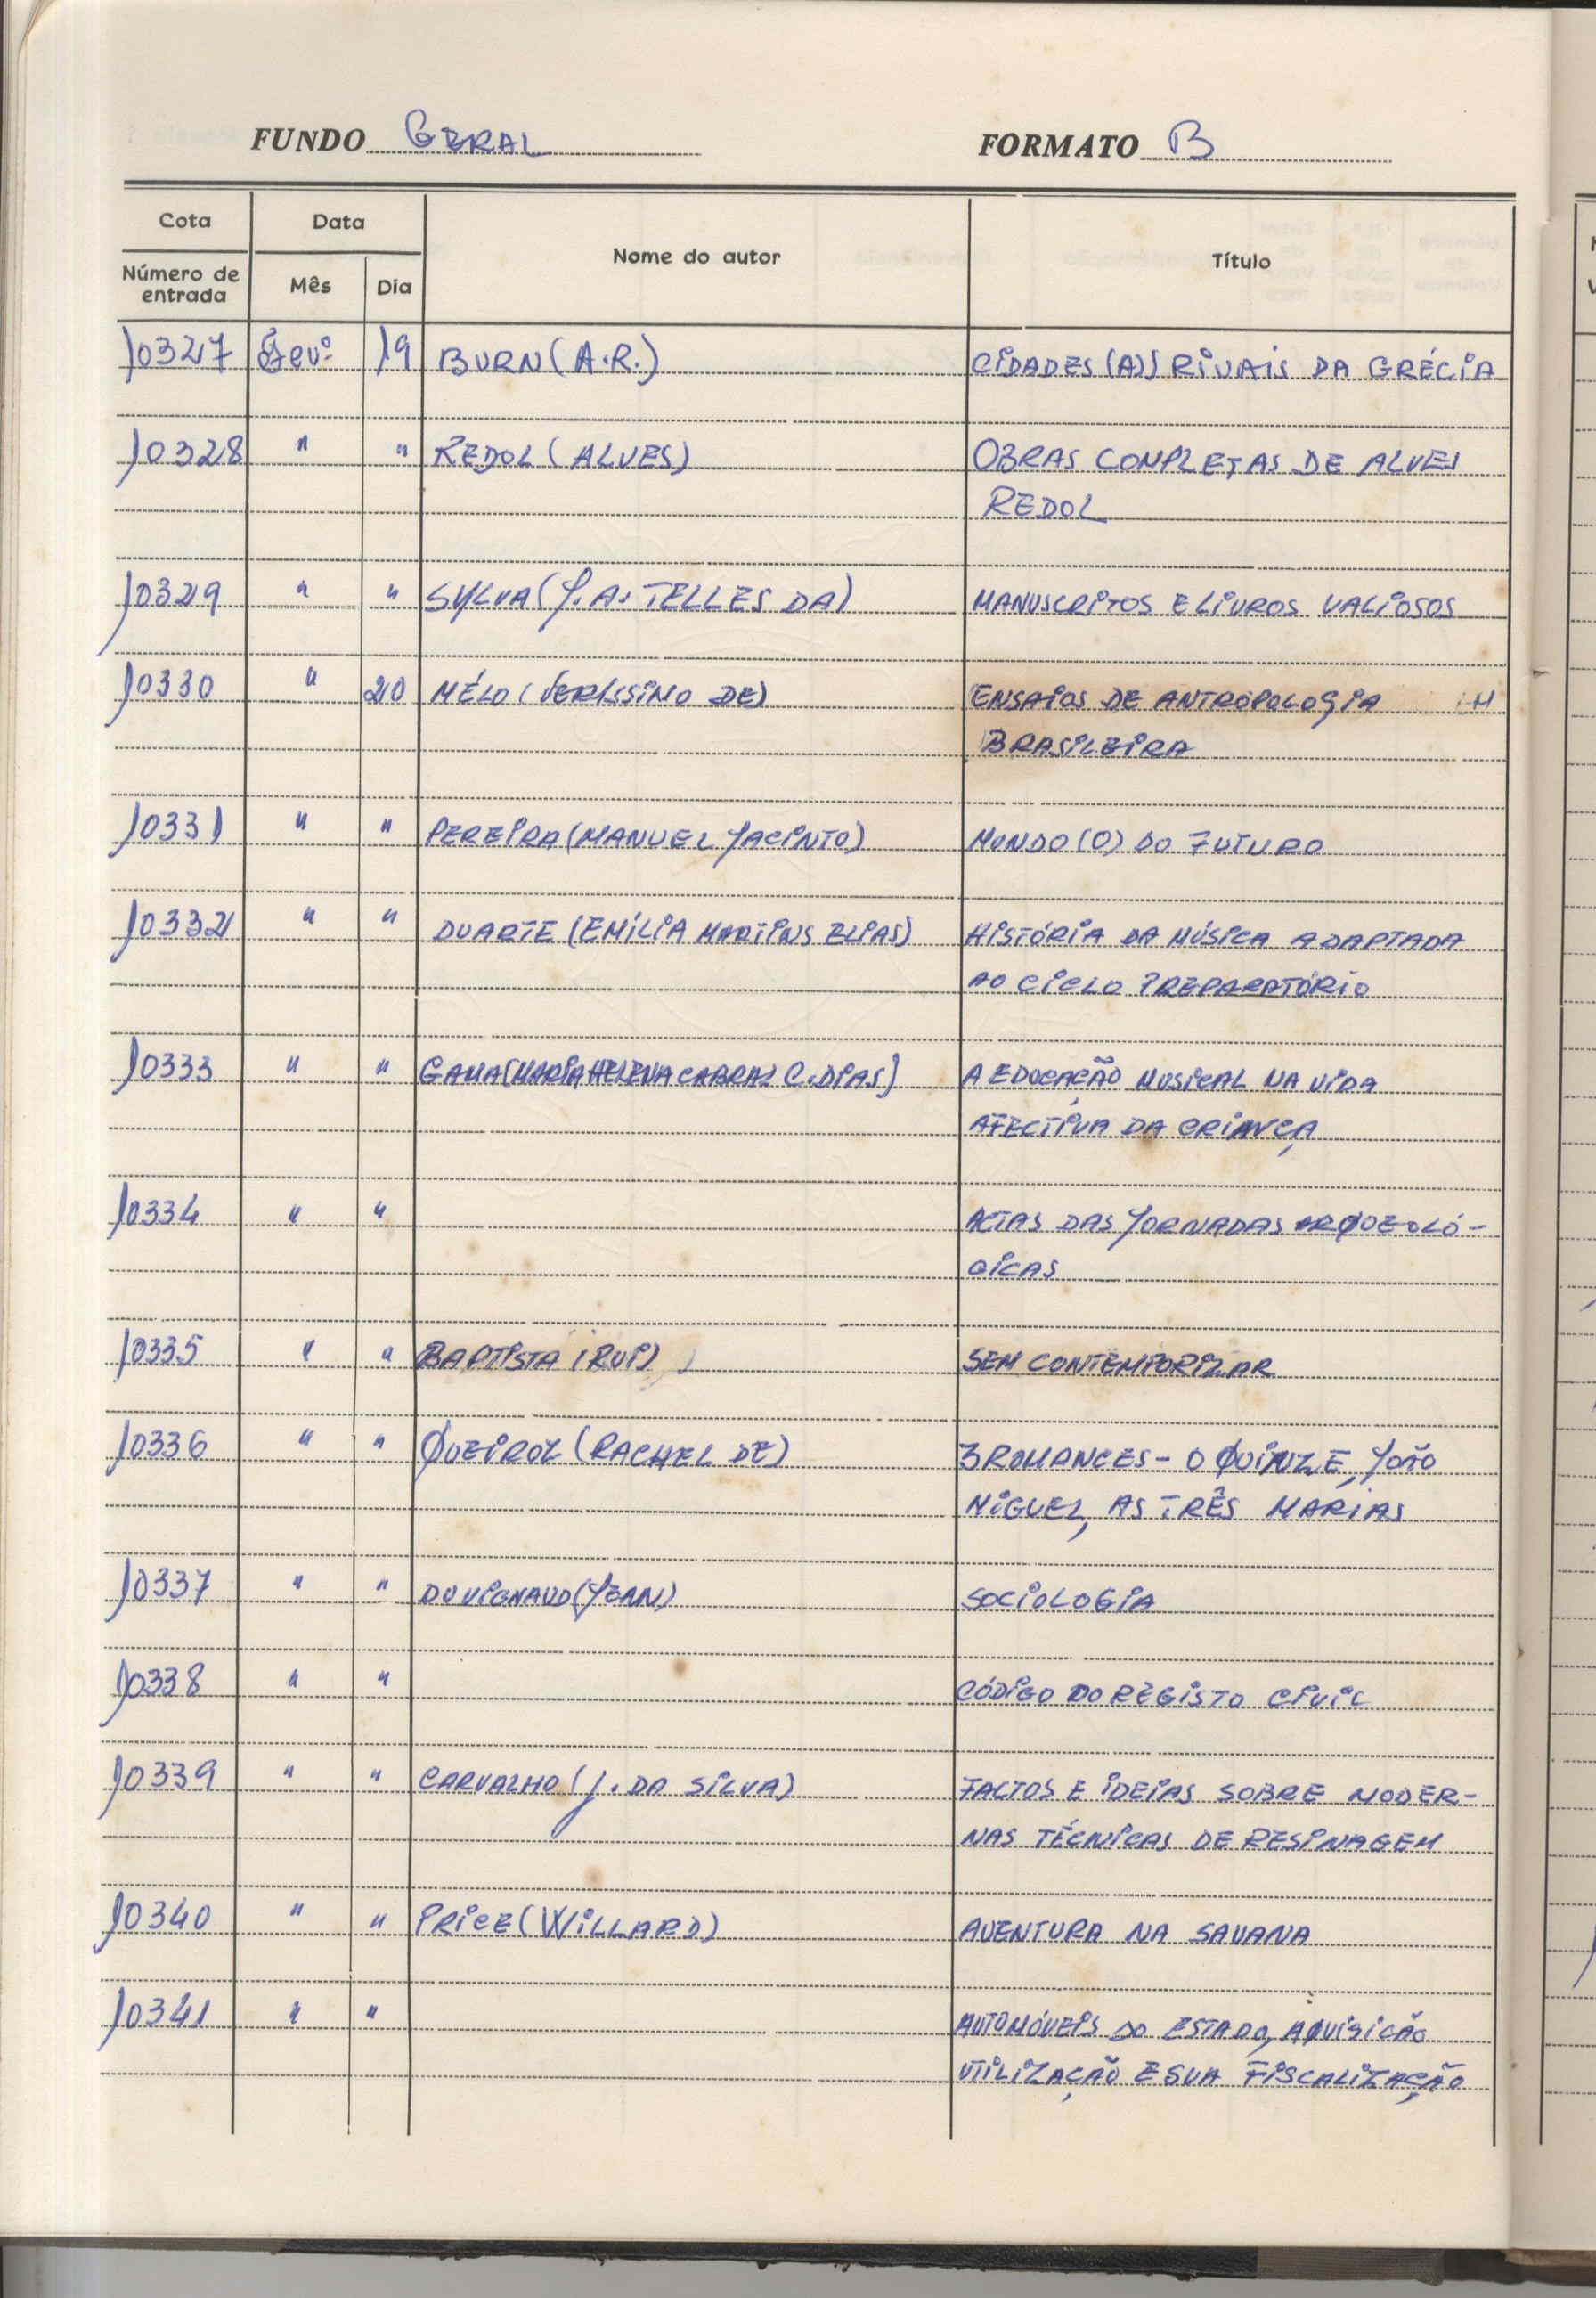 FUNDO GERAL FORMATO B
Cota Data Nome do autor Título
Número de entrada Mês Dia
10327 Fevº 19 BURN (A.R.) CIDADES (AS) RIVAIS DA GRÉCIA
10328 " " REDOL (ALVES) OBRAS COMPLETAS DE ALVES
REDOL
10329 " " SYLVA (J. A. TELLES DA) MANUSCRITOS E LIVROS VALIOSOS
10330 " 20 MÉLO (VERÍSSIMO DE) ENSAIOS DE ANTROPOLOGIA
BRASILEIRA
10331 " " PEREIRA (MANUEL JACINTO) MUNDO (O) DO FUTURO
10332 " " DUARTE (EMÍLIA MARTINS ELIAS) HISTÓRIA DA MÚSICA ADAPTADA
AO CICLO PREPARATÓRIO
10333 " " GAMA (MARIA HELENA CABRAL C. DIAS) A EDUCAÇÃO MUSICAL NA VIDA
AFECTIVA DA CRIANÇA
10334 " " ACTAS DAS JORNADAS ARQUEOLÓ-
GICAS
10335 " " BAPTISTA (RUI) SEM CONTEMPORIZAR
10336 " " QUEIROZ (RACHEL DE) 3 ROMANCES - O QUINZE, JOÃO
MIGUEL, AS TRÊS MARIAS
10337 " " DUVIGNAUD (JEAN) SOCIOLOGIA
10338 " " CÓDIGO DO REGISTO CIVIL
10339 " " CARVALHO (J. DA SILVA) FACTOS E IDEIAS SOBRE MODER-
NAS TÉCNICAS DE RESINAGEM
10340 " " PRICE (WILLARD) AVENTURA NA SAVANA
10341 " " AUTOMÓVEIS DO ESTADO, AQUISICÃO
UTILIZAÇÃO E SUA FISCALIZAÇÃO